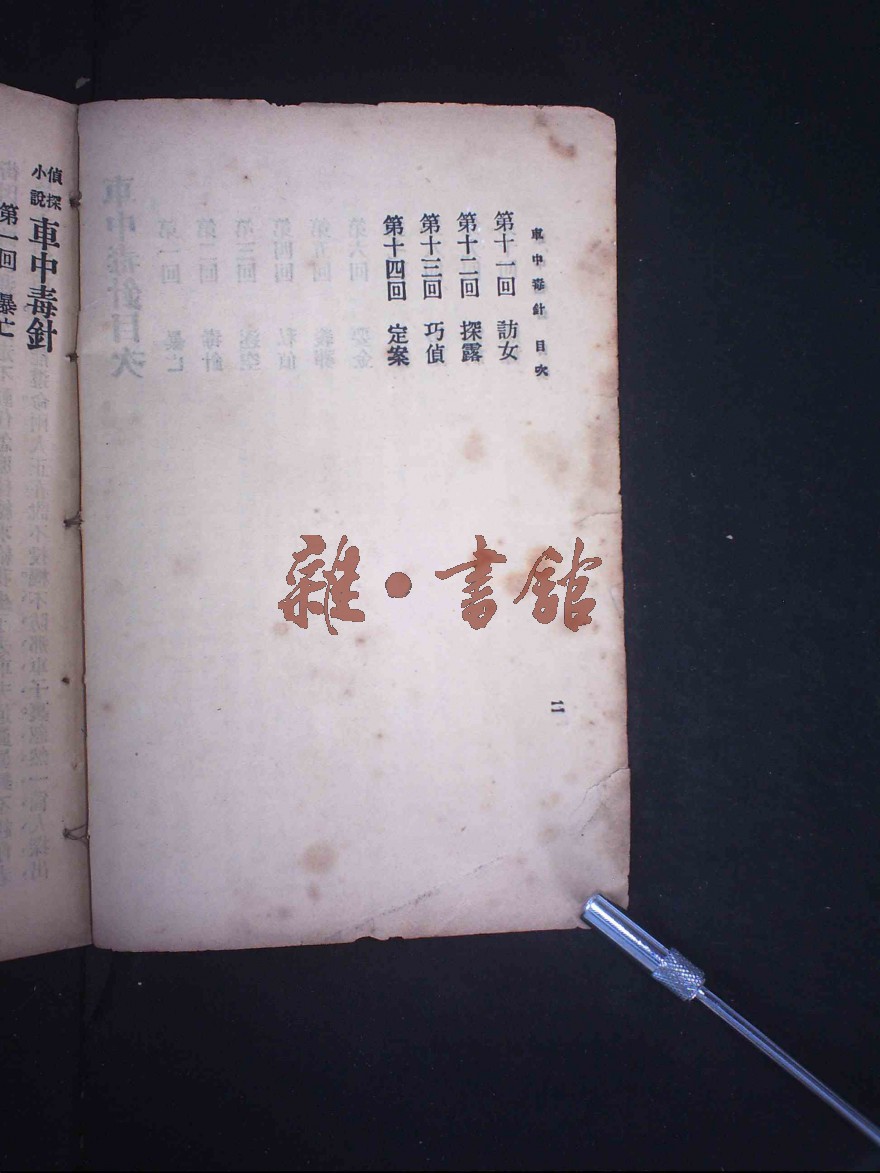 車中毒針 目次
第十一回 訪女
第十二回 探露
第十三回 巧偵
第十四回 定案
二
偵探
小說
車中毒針
第一回 暴亡
雜·書館